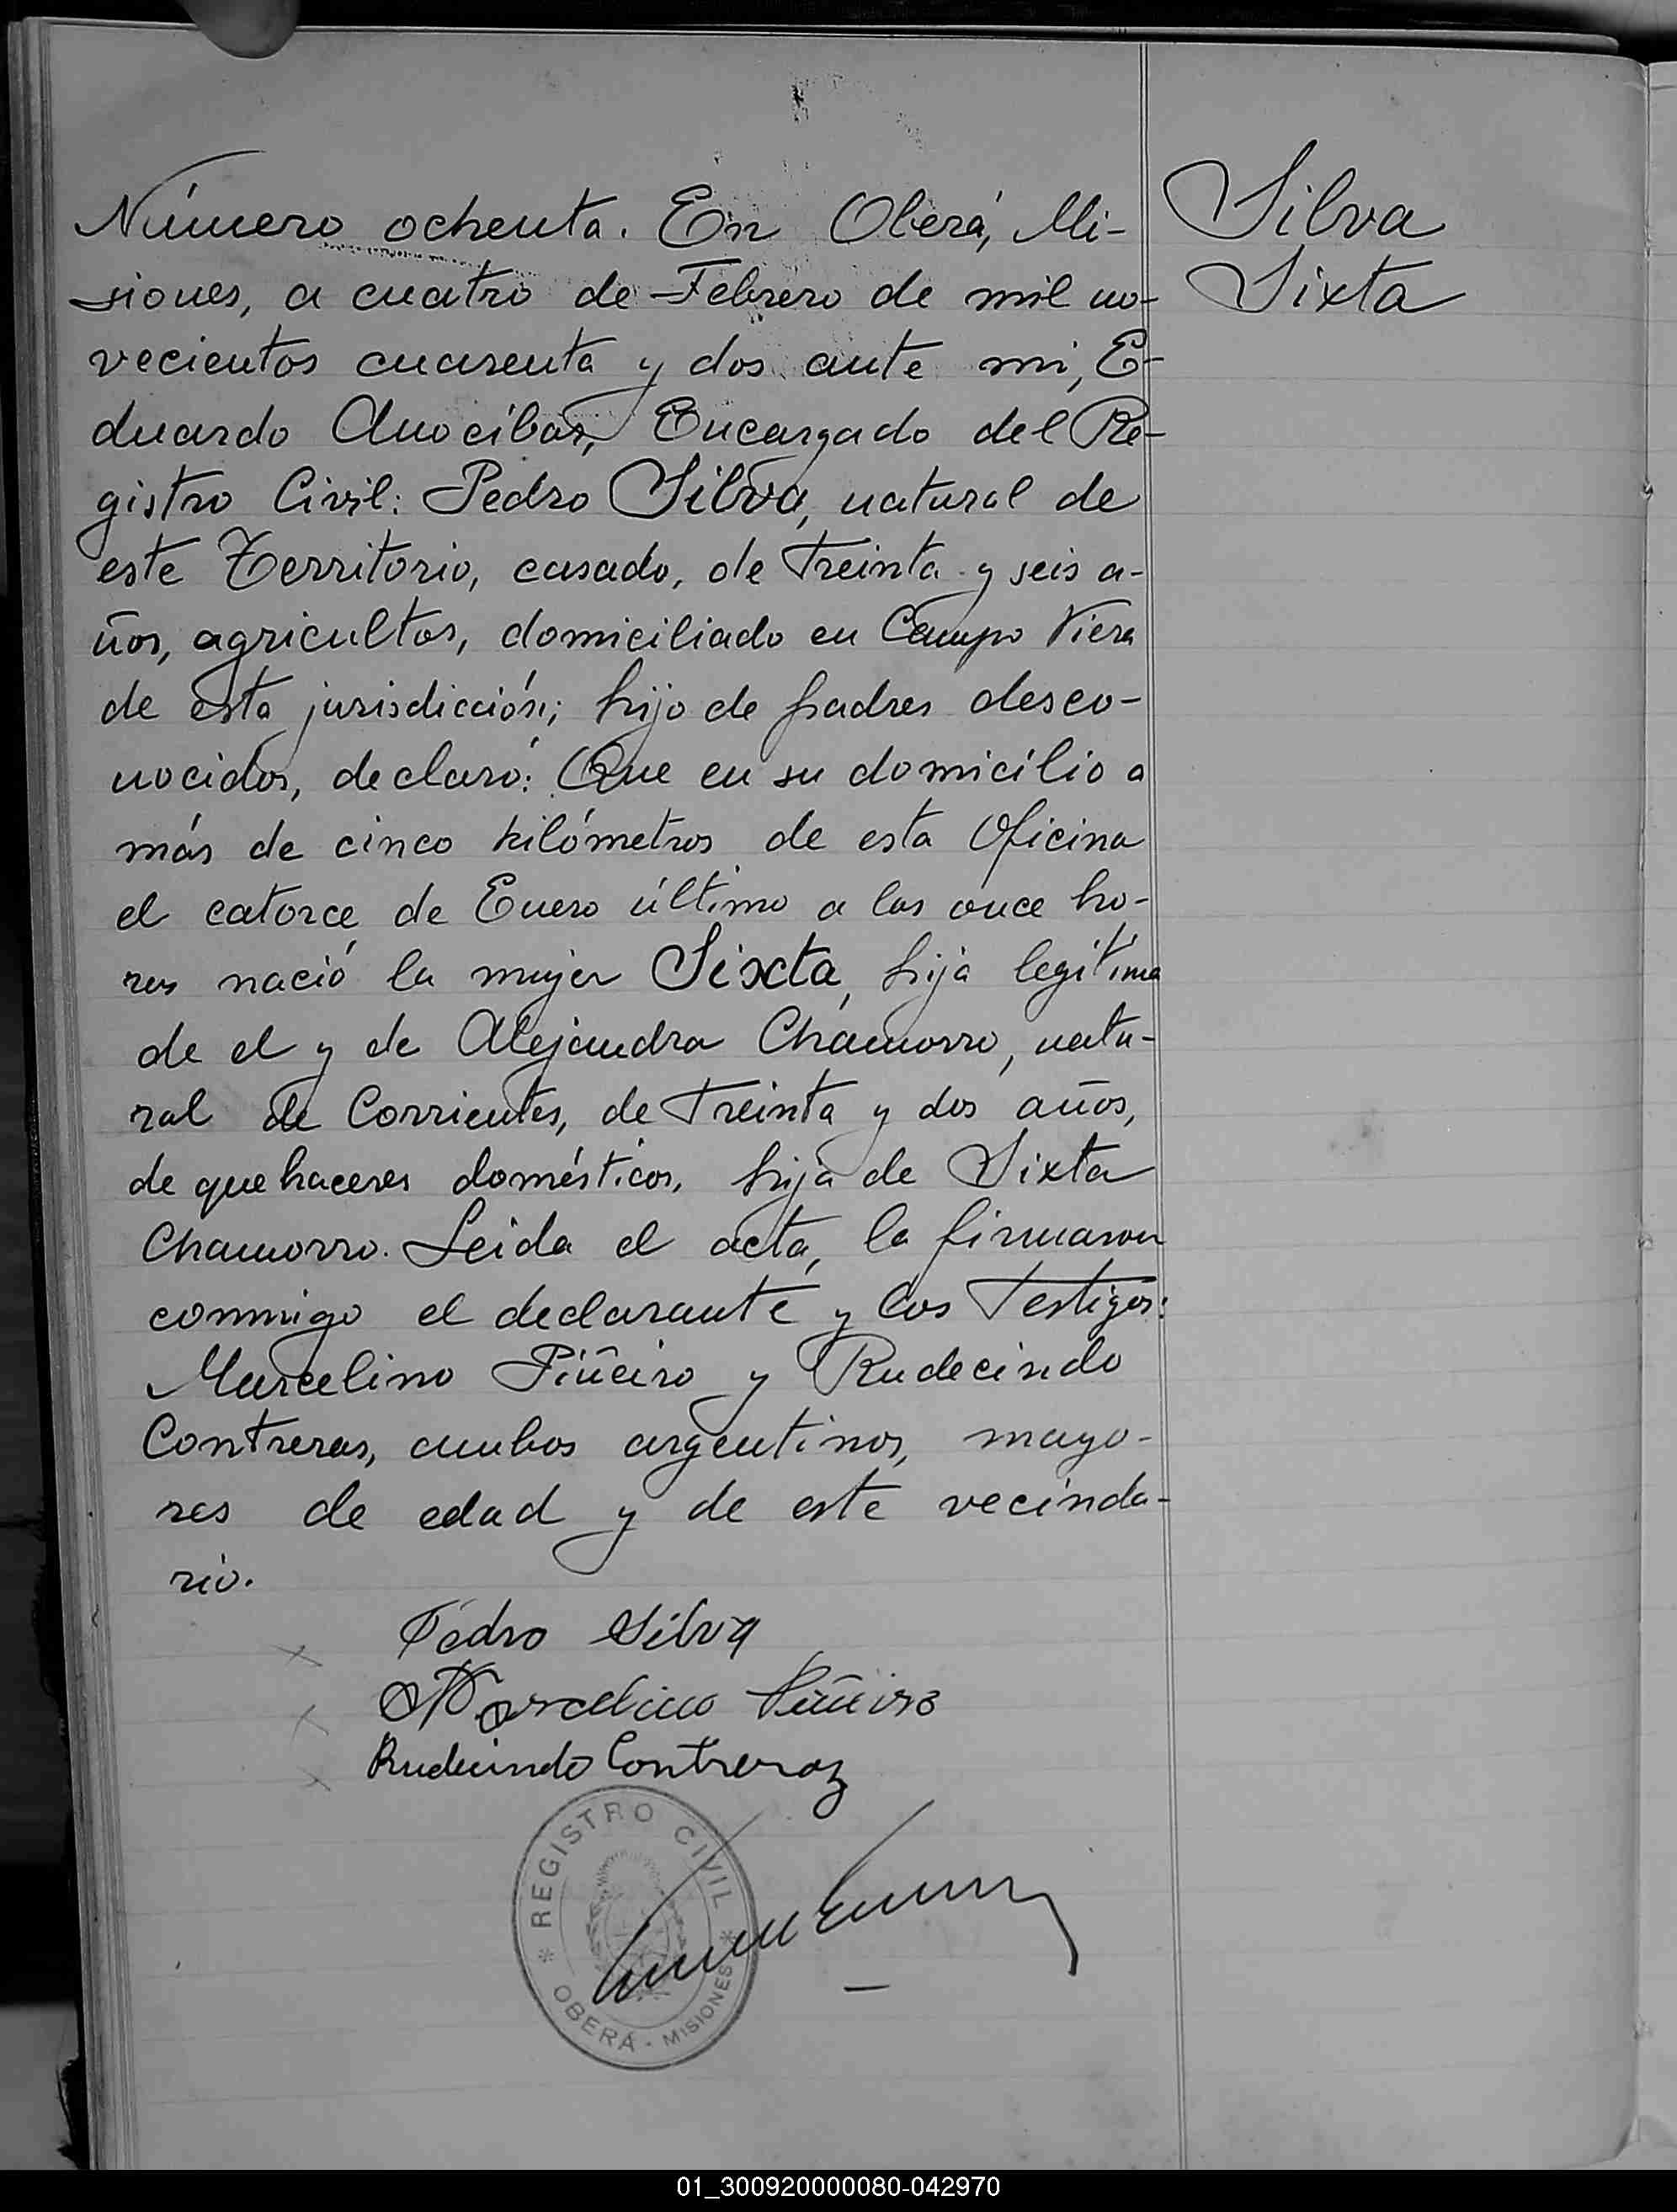 Número ochenta. En Oberá, Mi-
siones, a cuatro de Febrero de mil no-
vecientos cuarenta y dos ante mi, E-
duardo Anocibar, Encargado del Re-
gistro Civil: Pedro Silva, natural de
este Territorio, casado, de treinta y seis a-
ños, agricultor, domiciliado en Campo Viera
de esta jurisdicción; hijo de padres desco-
nocidos, declaró: Que en su domicilio a
más de cinco kilómetros de esta Oficina
el catorce de Enero último a las once ho-
ras nació la mujer Sixta, hija legítima
de el y de Alejandra Chamorro, natu-
ral de Corrientes, de treinta y dos años,
de quehaceres domésticos, hija de Sixta
Chamorro. Leida el acta, la firmaron
conmigo el declarante y los testigos:
Marcelino Piñeiro y Rudecindo
Contreras, ambos argentinos, mayo-
res de edad y de este vecinda-
rio.
Silva
Sixta
Pedro Silva
Marcelino Piñeiro
Rudecindo Contreraz
REGISTRO CIVIL
OBERÁ - MISIONES
01_300920000080-042970